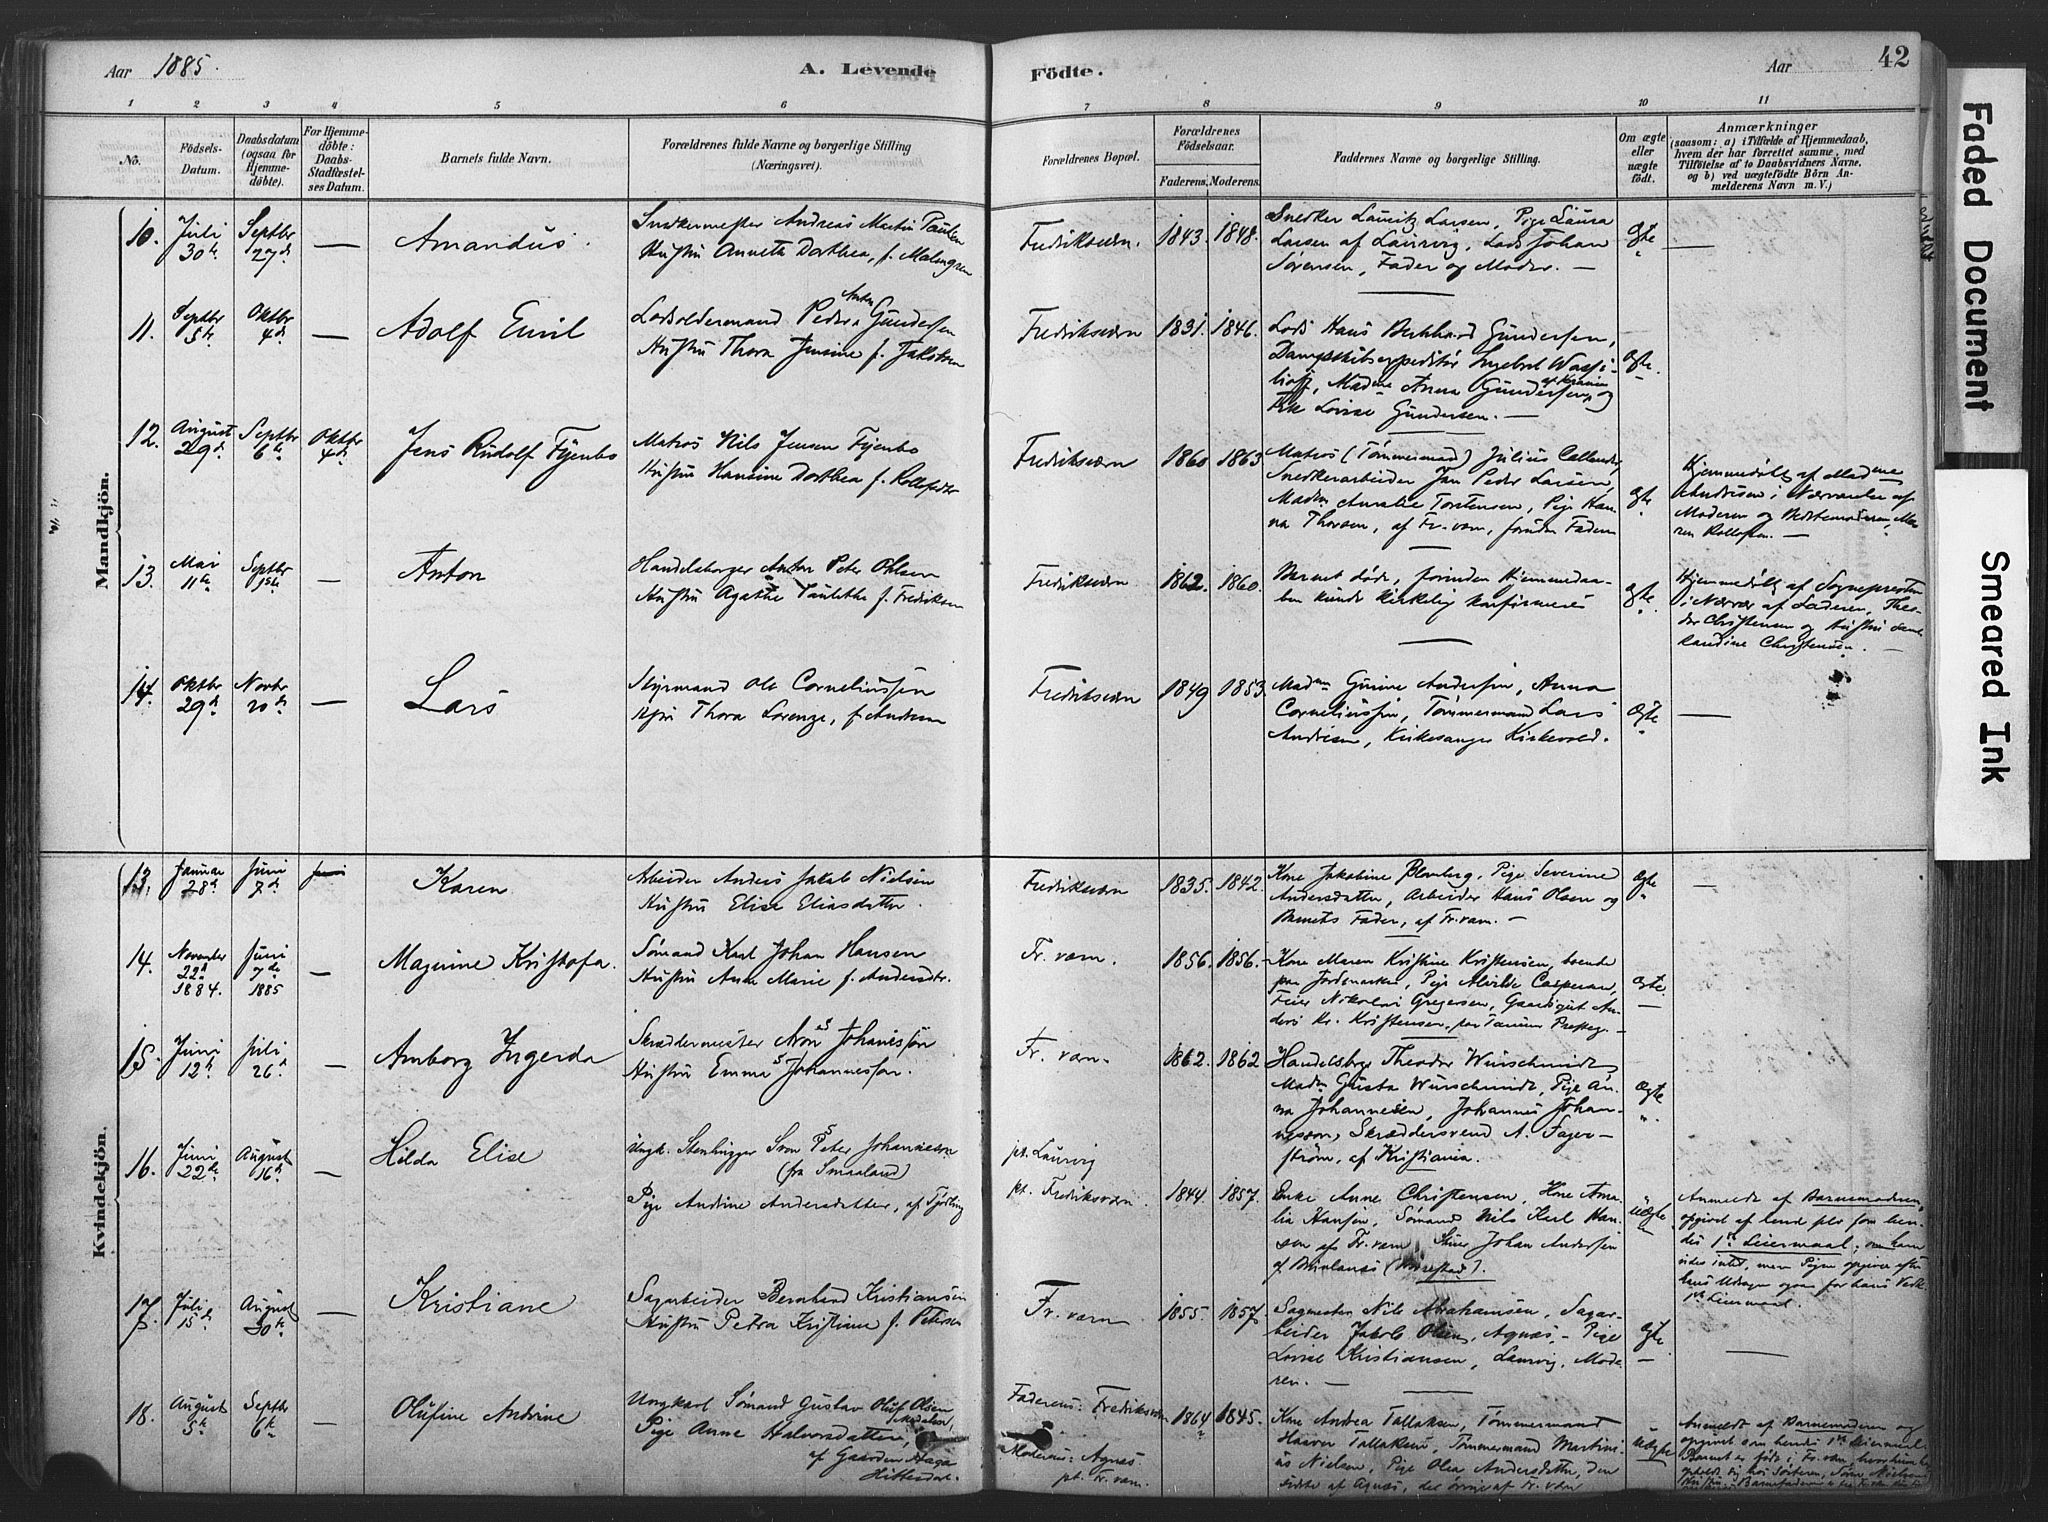 Aar 1885.
A. Levende
Födte.
Aar
42
1 2 3 4 5 6 7 8 9 10 11
No.
Födsels-
Datum.
Daabsdatum
(ogsaa for
Hjemme-
döbte).
For Hjemme-
döbte:
Daabs-
Stadfæstel-
ses Datum.
Barnets fulde Navn.
Forældrenes fulde Navne og borgerlige Stilling
(Næringsvei).
Forældrenes Bopæl.
Forældrenes
Födselsaar.
Faderens. Moderens.
Faddernes Navne og borgerlige Stilling.
Om ægte
eller
uægte
födt.
Anmærkninger
(saasom: a) i Tilfælde af Hjemmedaab,
hvem der har forrettet samme, med
Tilföielse af to Daabsvidners Navne,
og b) ved uægtefödte Börn An-
melderens Navn m. V.)
Mandkjön.
10.
Juli
30te
Septbr
27de
—
Amandus.
Snedkermester Andreas Martin Paulsen
Hustru Annette Dorthea, f. Malmgren
Fredriksværn.
1843. 1848.
Snedker Lauritz Larsen, Pige Laura
Larsen af Laurvig, Lods Johan
Sørensen, Fader og Moder. —
Ægte
—
11.
Septbr
5te
Oktbr
4de
—
Adolf Emil
Lodsoldermand Peder Anton Gundersen
Hustru Thora Jensine f. Jakobsen
Fredriksværn
1831. 1846.
Lods Hans Bernhard Gundersen,
Dampskibsexpeditør Ingebret
Madme Anna Gundersen, og
Frk Lovise Gundersen. —
Ægte.
12.
August
29de
Septbr
6te
Oktbr
4de
Jens Rudolf Fyenbo
Matros Nils Jensen Fyenbo
Hustru Hansine Dorthea f.
Fredriksværn
1860 1863
Matros (Tømmermand) Julius
Snedkerarbeider Jan Peder Larsen,
Madm Amalie Torstensen, Pige Han-
na Thorsen, af Fr.værn, foruden Faderen
Ægte
Hjemmedøbt af Madme
Andersen i Nærværelse af
Moderen og Bedstemoderen, Ma-
ren Rollefsen. —
13.
Mai
11te
Septbr
1ste
—
Anton
Handelsborger Anton Peter Ohlsen
Hustru Agathe Paulette f. Fredriksen
Fredriksværn
1862. 1860.
Barnet døde, forinden Hjemmedaa-
ben kunde kirkelig konfirmeres
Ægte.
Hjemmedøbt af Sognepresten
i Nærvær af Faderen, Theo-
dor Christensen og Hustru
Christensen.
14.
Oktbr
29de
Novbr
20de
—
Lars
Styrmand Ole Corneliussen
Hustru Thora Lorenze, f. Andersen
Fredriksværn
1849 1853.
Madme Gurine Andersen, Anna
Corneliussen, Tømmermand Lars
Andersen, Kirkesanger Kirkevold.
Ægte
—
Kvindekjön.
13.
Januar
28de
Juni
7de
Karen
Arbeider Anders Jakob Nielsen
Hustru Elise Eliasdatter.
Fredriksværn
1835. 1842.
Kone Jakobine Blomberg, Pige Severine
Andersdatter, Arbeider Hans Olsen og
Barnets Fader, af Fr.værn. —
Ægte
—
14.
November
22de
1884.
Juni
7de
1885
—
Magnine Kristofa.
Sømand Karl Johan Hansen
Hustru Anne Marie f. Andersdtr.
Fr. værn.
1856. 1856.
Kone Maren Kristine Kristensen, boende
paa Pige Alvilde Caspersen,
Feier Nikolai Gregersen, Gaardgut An-
ders Kr. Kristensen, paa Tanum Prestegj. —
Ægte.
15.
Juni
12te
Juli
26de
—
Amborg Ingerda
Skræddermester Aron Johannessøn
Hustru Emma Johannesson.
Fr. værn
1862. 1862
Handelsbgr Theodor Wurschmidt,
Madm Gusta Wurschmidt, Pige An-
na Johannesen, Johannes Johan-
nesson, Skræddersvend A. Fager-
strøm, af Kristiania.
Ægte
16.
Juni
22de
August
16de
—
Hilda Elise
Ungk. Stenhugger Sven Peter Johannesson
(fra Smaaland)
Pige Andrine Andersdatter, af Tjødling
pt. Laurvig
pt. Fredriksværn.
1844. 1857.
Enke Anne Christensen, Kone Ama-
lia Hansen, Sømand Nils Karl Han-
sen af Fr. værn Johan Andersen
af
Uægte
Anmeldt af Barnemoderen,
opgivet af
des 1ste Leiermaal;
1ste Leiermaal.
17.
Juli
15de
August
30te
—
Kristiane
Sagarbeider Bernhard Kristiansen
Hustru Petra Kristiane f. Petersen
Fr. værn
1855. 1857.
Sagmester Nils Abrahamsen, Sagar-
beider Jakob Olsen, Agnæs, Pige
Lovise Kristiansen, Laurvig, Mode-
ren. —
Ægte
—
18.
August
5te
Septbr
6te
—
Olufine Andrine
Ungkarl Sømand Gustav Oluf Olsen
Pige Anne Halvorsdatter,
af Gaarden Haga
Hitterdal.
Faderens: Fredriksværn
Moderens: Agnæs
pt. Fr. værn.
1864 1845.
Kone Andrea Tallaksen, Tømmermand
Haaver Tallaksen, Tømmermand Martini-
us Nielsen, Pige Olea Andersdatter, den
sidste af Agnæs, det øvrige af Fr. værn
Uægte
Anmeldt af Barnemoderen og
opgivet som hendes 1ste Leiermaal
Barnet er født i Fr. værn,
Faded Document
Smeared Ink